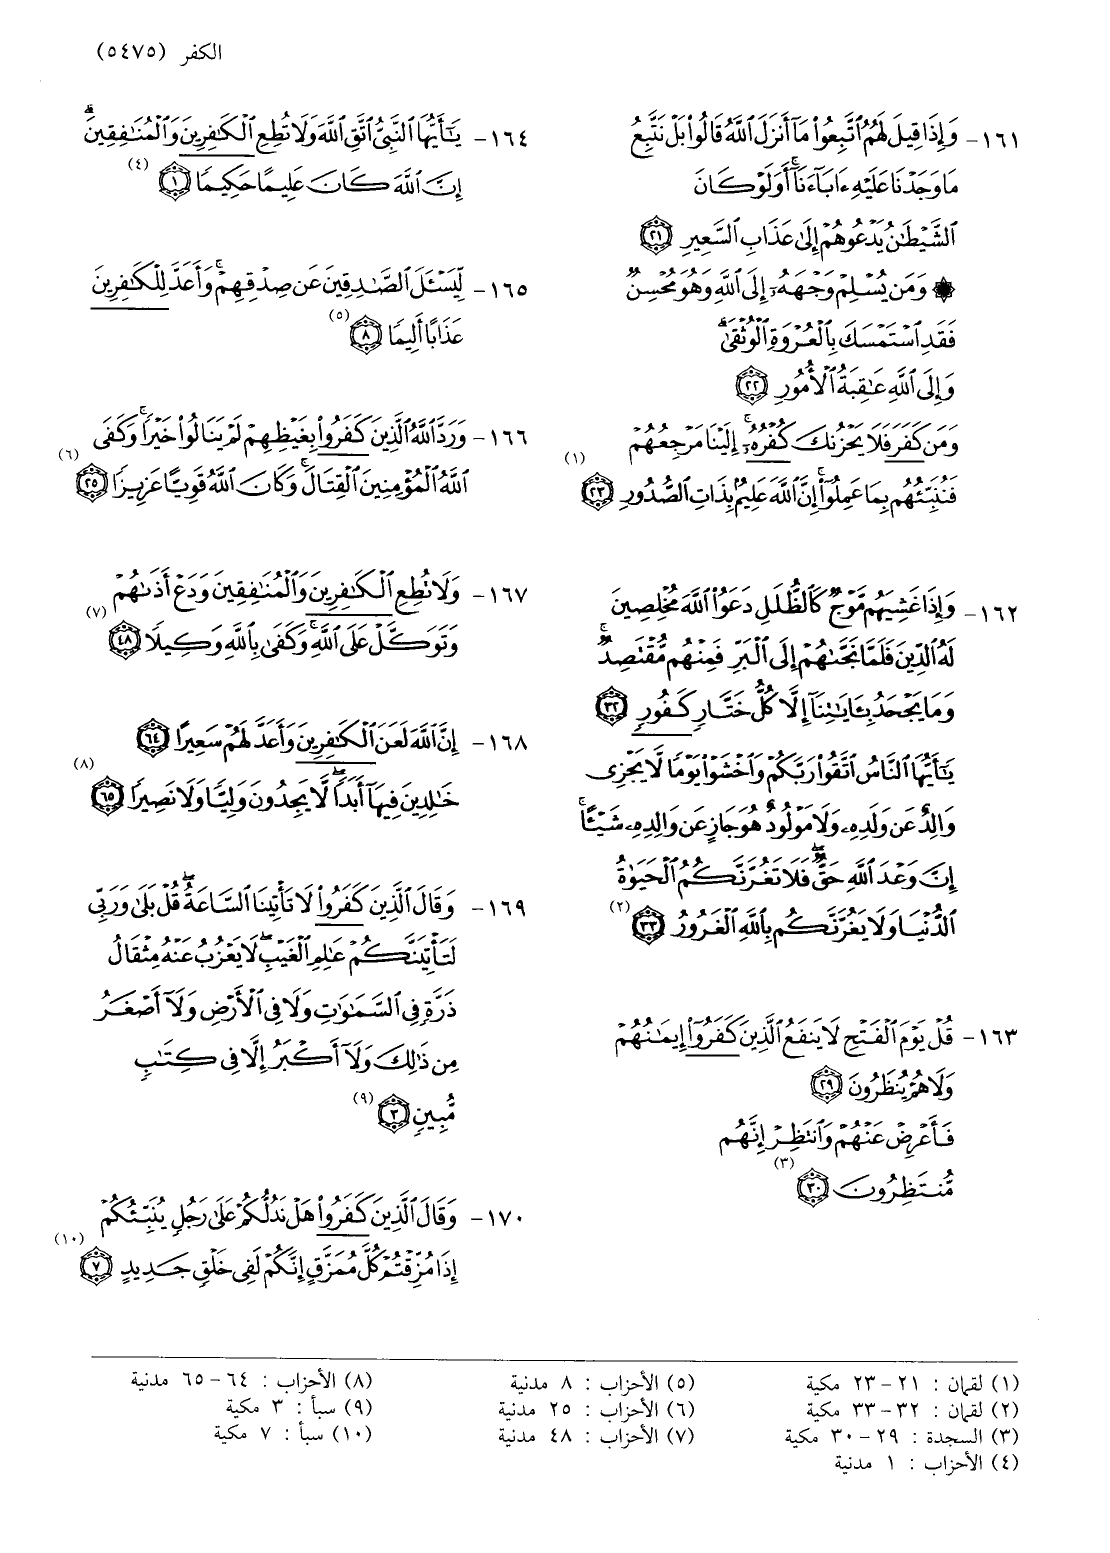 الكفر (٥٤٧٥)
١٦١- وَإِذَا قِيلَ لَهُمُ ٱتَّبِعُوا۟ مَآ أَنزَلَ ٱللَّهُ قَالُوا۟ بَلْ نَتَّبِعُ
مَا وَجَدْنَا عَلَيْهِ ءَابَآءَنَآ ۚ أَوَلَوْ كَانَ
ٱلشَّيْطَٰنُ يَدْعُوهُمْ إِلَىٰ عَذَابِ ٱلسَّعِيرِ ﴿٢١﴾
۞ وَمَن يُسْلِمْ وَجْهَهُۥٓ إِلَى ٱللَّهِ وَهُوَ مُحْسِنٌ
فَقَدِ ٱسْتَمْسَكَ بِٱلْعُرْوَةِ ٱلْوُثْقَىٰ ۗ
وَإِلَى ٱللَّهِ عَٰقِبَةُ ٱلْأُمُورِ ﴿٢٢﴾
وَمَن كَفَرَ فَلَا يَحْزُنكَ كُفْرُهُۥٓ ۚ إِلَيْنَا مَرْجِعُهُمْ
فَنُنَبِّئُهُم بِمَا عَمِلُوٓا۟ ۚ إِنَّ ٱللَّهَ عَلِيمٌۢ بِذَاتِ ٱلصُّدُورِ ﴿٢٣﴾ (١)
١٦٢- وَإِذَا غَشِيَهُم مَّوْجٌ كَٱلظُّلَلِ دَعَوُا۟ ٱللَّهَ مُخْلِصِينَ
لَهُ ٱلدِّينَ فَلَمَّا نَجَّىٰهُمْ إِلَى ٱلْبَرِّ فَمِنْهُم مُّقْتَصِدٌ ۚ
وَمَا يَجْحَدُ بِـَٔايَٰتِنَآ إِلَّا كُلُّ خَتَّارٍ كَفُورٍ ﴿٣٢﴾
يَٰٓأَيُّهَا ٱلنَّاسُ ٱتَّقُوا۟ رَبَّكُمْ وَٱخْشَوْا۟ يَوْمًا لَّا يَجْزِى
وَالِدٌ عَن وَلَدِهِۦ وَلَا مَوْلُودٌ هُوَ جَازٍ عَن وَالِدِهِۦ شَيْـًٔا ۚ
إِنَّ وَعْدَ ٱللَّهِ حَقٌّ ۖ فَلَا تَغُرَّنَّكُمُ ٱلْحَيَوٰةُ
ٱلدُّنْيَا وَلَا يَغُرَّنَّكُم بِٱللَّهِ ٱلْغَرُورُ ﴿٣٣﴾ (٢)
١٦٣- قُلْ يَوْمَ ٱلْفَتْحِ لَا يَنفَعُ ٱلَّذِينَ كَفَرُوٓا۟ إِيمَٰنُهُمْ
وَلَا هُمْ يُنظَرُونَ ﴿٢٩﴾
فَأَعْرِضْ عَنْهُمْ وَٱنتَظِرْ إِنَّهُم
مُّنتَظِرُونَ ﴿٣٠﴾ (٣)
١٦٤- يَٰٓأَيُّهَا ٱلنَّبِىُّ ٱتَّقِ ٱللَّهَ وَلَا تُطِعِ ٱلْكَٰفِرِينَ وَٱلْمُنَٰفِقِينَ ۗ
إِنَّ ٱللَّهَ كَانَ عَلِيمًا حَكِيمًا ﴿١﴾ (٤)
١٦٥- لِّيَسْـَٔلَ ٱلصَّٰدِقِينَ عَن صِدْقِهِمْ ۚ وَأَعَدَّ لِلْكَٰفِرِينَ
عَذَابًا أَلِيمًا ﴿٨﴾ (٥)
١٦٦- وَرَدَّ ٱللَّهُ ٱلَّذِينَ كَفَرُوا۟ بِغَيْظِهِمْ لَمْ يَنَالُوا۟ خَيْرًا ۚ وَكَفَى
ٱللَّهُ ٱلْمُؤْمِنِينَ ٱلْقِتَالَ ۚ وَكَانَ ٱللَّهُ قَوِيًّا عَزِيزًا ﴿٢٥﴾ (٦)
١٦٧- وَلَا تُطِعِ ٱلْكَٰفِرِينَ وَٱلْمُنَٰفِقِينَ وَدَعْ أَذَىٰهُمْ
وَتَوَكَّلْ عَلَى ٱللَّهِ ۚ وَكَفَىٰ بِٱللَّهِ وَكِيلًا ﴿٤٨﴾ (٧)
١٦٨- إِنَّ ٱللَّهَ لَعَنَ ٱلْكَٰفِرِينَ وَأَعَدَّ لَهُمْ سَعِيرًا ﴿٦٤﴾
خَٰلِدِينَ فِيهَآ أَبَدًا ۖ لَّا يَجِدُونَ وَلِيًّا وَلَا نَصِيرًا ﴿٦٥﴾ (٨)
١٦٩- وَقَالَ ٱلَّذِينَ كَفَرُوا۟ لَا تَأْتِينَا ٱلسَّاعَةُ ۖ قُلْ بَلَىٰ وَرَبِّى
لَتَأْتِيَنَّكُمْ عَٰلِمِ ٱلْغَيْبِ ۖ لَا يَعْزُبُ عَنْهُ مِثْقَالُ
ذَرَّةٍ فِى ٱلسَّمَٰوَٰتِ وَلَا فِى ٱلْأَرْضِ وَلَآ أَصْغَرُ
مِن ذَٰلِكَ وَلَآ أَكْبَرُ إِلَّا فِى كِتَٰبٍ
مُّبِينٍ ﴿٣﴾ (٩)
١٧٠- وَقَالَ ٱلَّذِينَ كَفَرُوا۟ هَلْ نَدُلُّكُمْ عَلَىٰ رَجُلٍ يُنَبِّئُكُمْ
إِذَا مُزِّقْتُمْ كُلَّ مُمَزَّقٍ إِنَّكُمْ لَفِى خَلْقٍ جَدِيدٍ ﴿٧﴾ (١٠)
(١) لقمان : ٢١ - ٢٣ مكية
(٢) لقمان : ٣٢ - ٣٣ مكية
(٣) السجدة : ٢٩ - ٣٠ مكية
(٤) الأحزاب : ١ مدنية
(٥) الأحزاب : ٨ مدنية
(٦) الأحزاب : ٢٥ مدنية
(٧) الأحزاب : ٤٨ مدنية
(٨) الأحزاب : ٦٤ - ٦٥ مدنية
(٩) سبأ : ٣ مكية
(١٠) سبأ : ٧ مكية